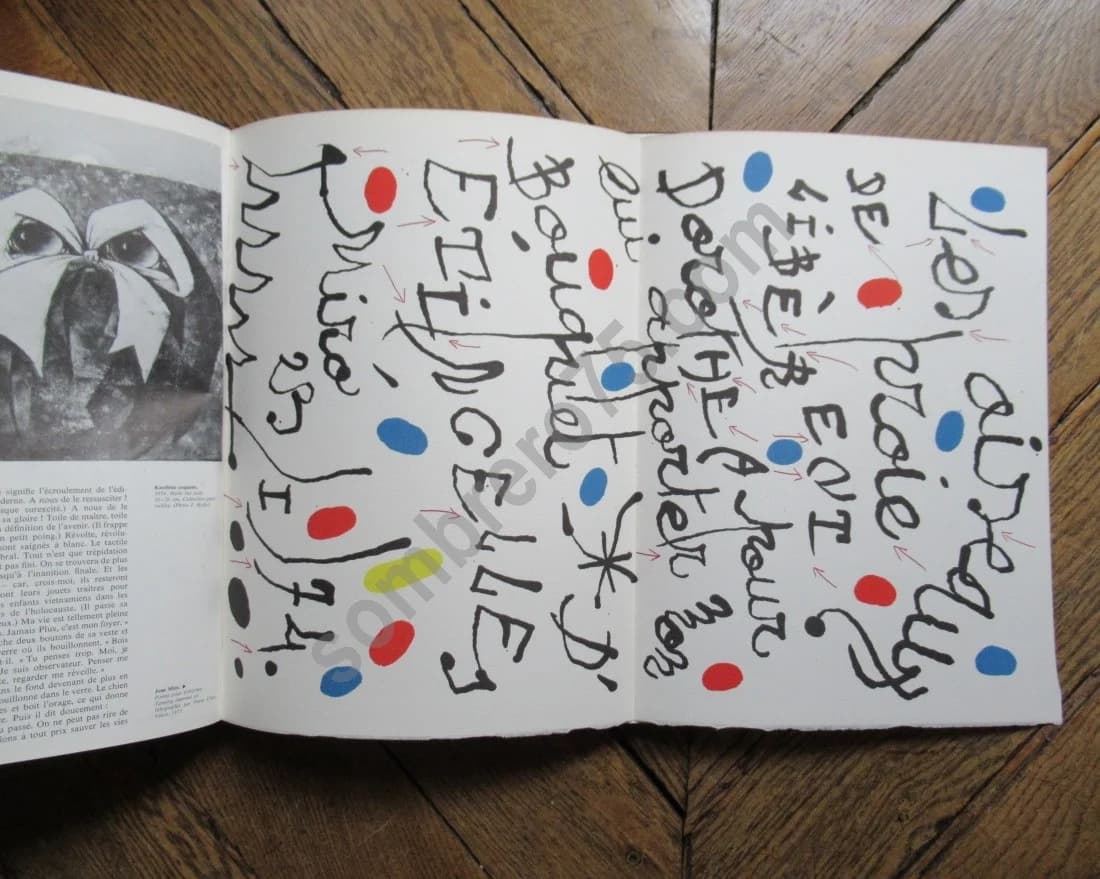 signifie l'écroulement de l'édi-
derne. A nous de le ressusciter !
sque surexcité.) A nous de le
sa gloire ! Toile de maître, toile
définition de l'avenir. (Il frappe
n petit poing.) Révolte, révolu-
ont saignés à blanc. Le tactile
bral. Tout n'est que trépidation
pas fini. On se trouvera de plus
squ'à l'inanition finale. Et les
car, crois-moi, ils resteront
ont leurs jouets traîtres pour
enfants vietnamiens dans les
s de l'holocauste. (Il passe sa
eux.) Ma vie est tellement pleine
Jamais Plus, c'est mon foyer. »
che deux boutons de sa veste et
verre où ils bouillonnent. « Bois
t-il. « Tu penses trop. Moi, je
Je suis observateur. Penser me
e, regarder me réveille. »
ns le fond devenant de plus en
ouillonne dans le verre. Le chien
es et boit l'orage, ce qui donne
e. Puis il dit doucement :
u passé. On ne peut pas rire de
lons à tout prix sauver les vies
Joan Miro.
Les
DE proie
LIBÈRENT
DoroTHEA pour
lui apporter mon
Bouquet * D'
ETINCELLES
Miró
25/I/74.
sombrero75.com